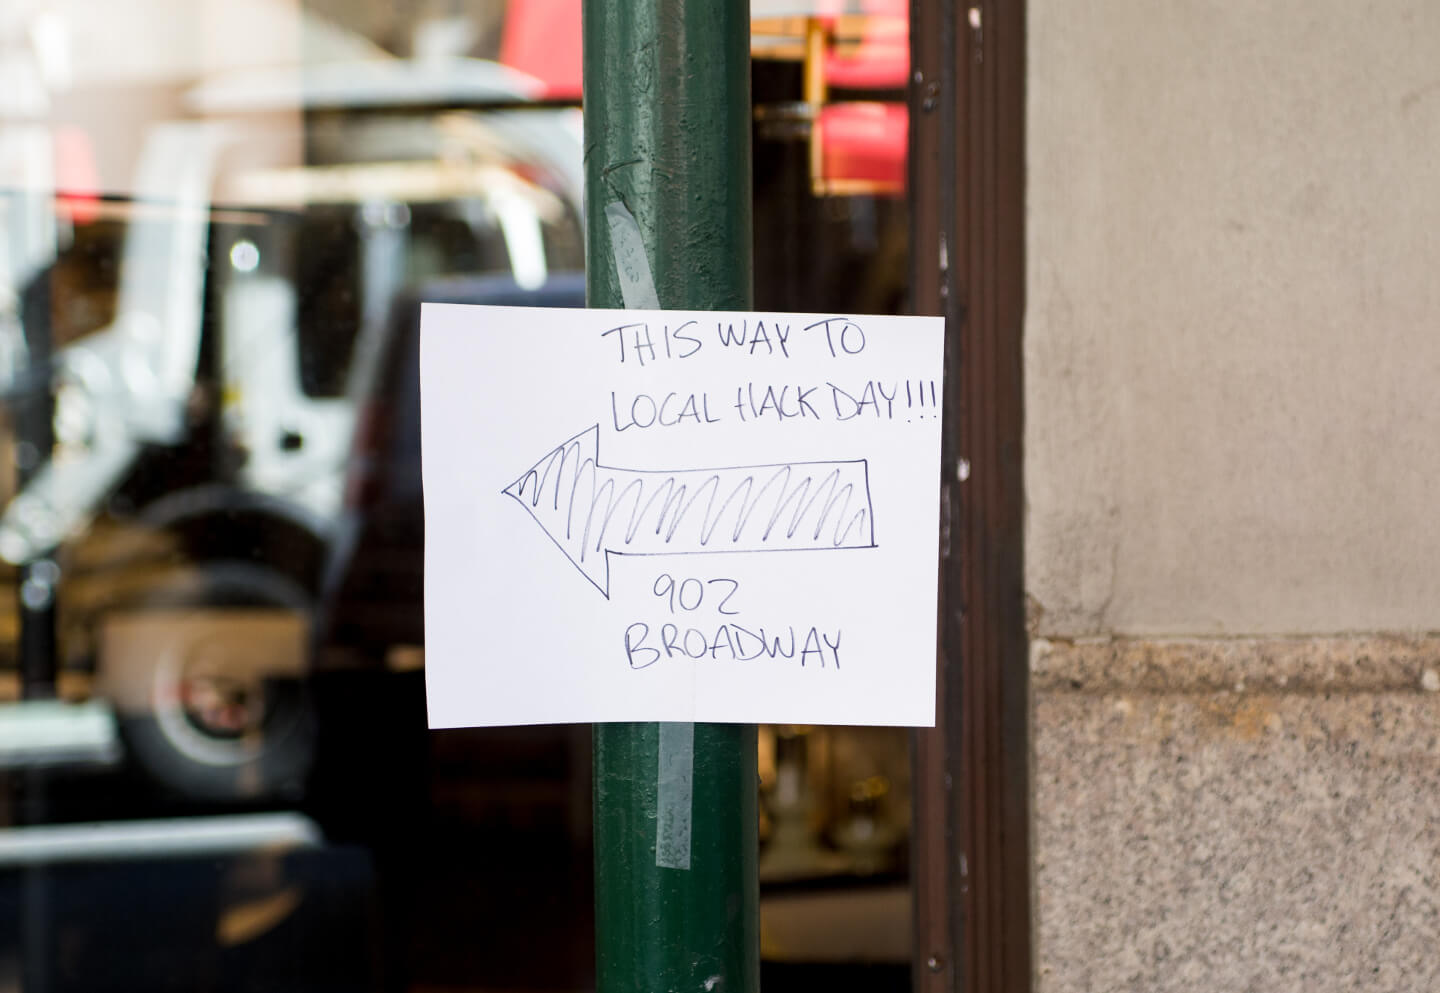 THIS WAY TO
LOCAL HACK DAY!!!
902
BROADWAY